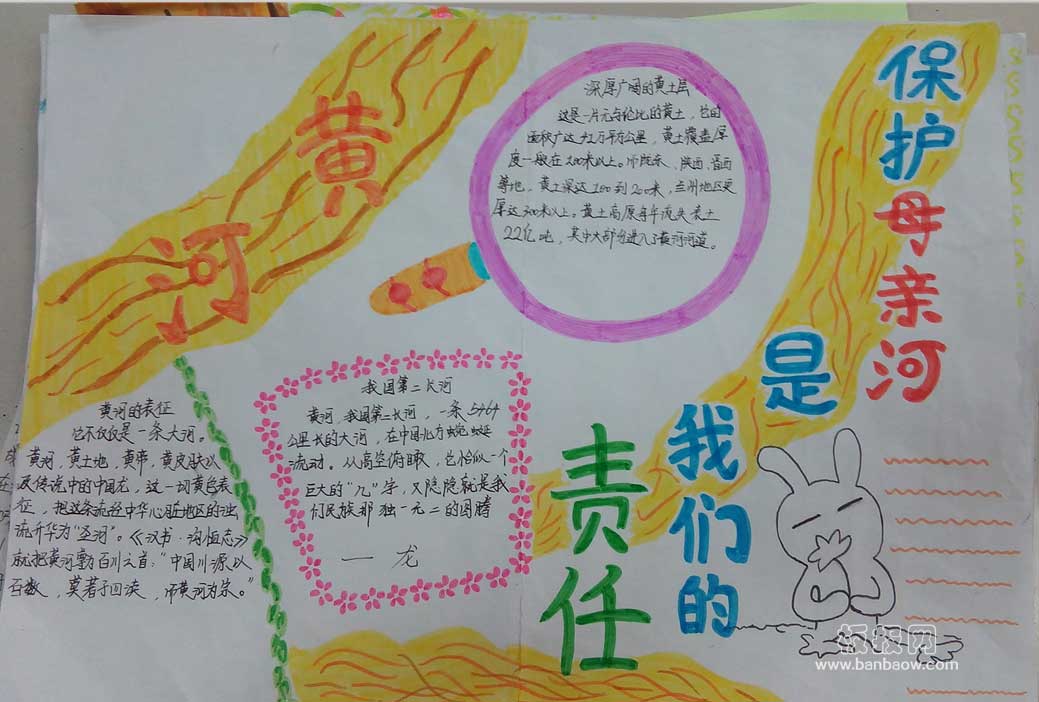 黄
河
保护母亲河
是
我们的
责任
深厚广阔的黄土层
这是一片无与伦比的黄土，它的
面积广达42万平方公里，黄土覆盖厚
度一般在100米以上。而陇东、陕西、晋西
等地，黄土深达100到200米，兰州地区更
厚达300米以上。黄土高原每年流失表土
22亿吨，其中大部分进入了黄河河道。
我国第二长河
黄河，我国第二长河，一条5464
公里长的大河，在中国北方蜿蜒
流动。从高空俯瞰，它恰似一个
巨大的"几"字，又隐隐就是我
们民族那独一无二的图腾
一龙
黄河的表征
它不仅仅是一条大河。
黄河，黄土地，黄帝，黄皮肤以
及传说中的中国龙，这一切黄色表
征，把这条流经中华心脏地区的浊
流升华为"圣河"。《汉书·沟恤志》
就把黄河尊为百川之首："中国川源以
百数，莫著于四渎，而黄河为宗。"
板报网
www.banbaow.com